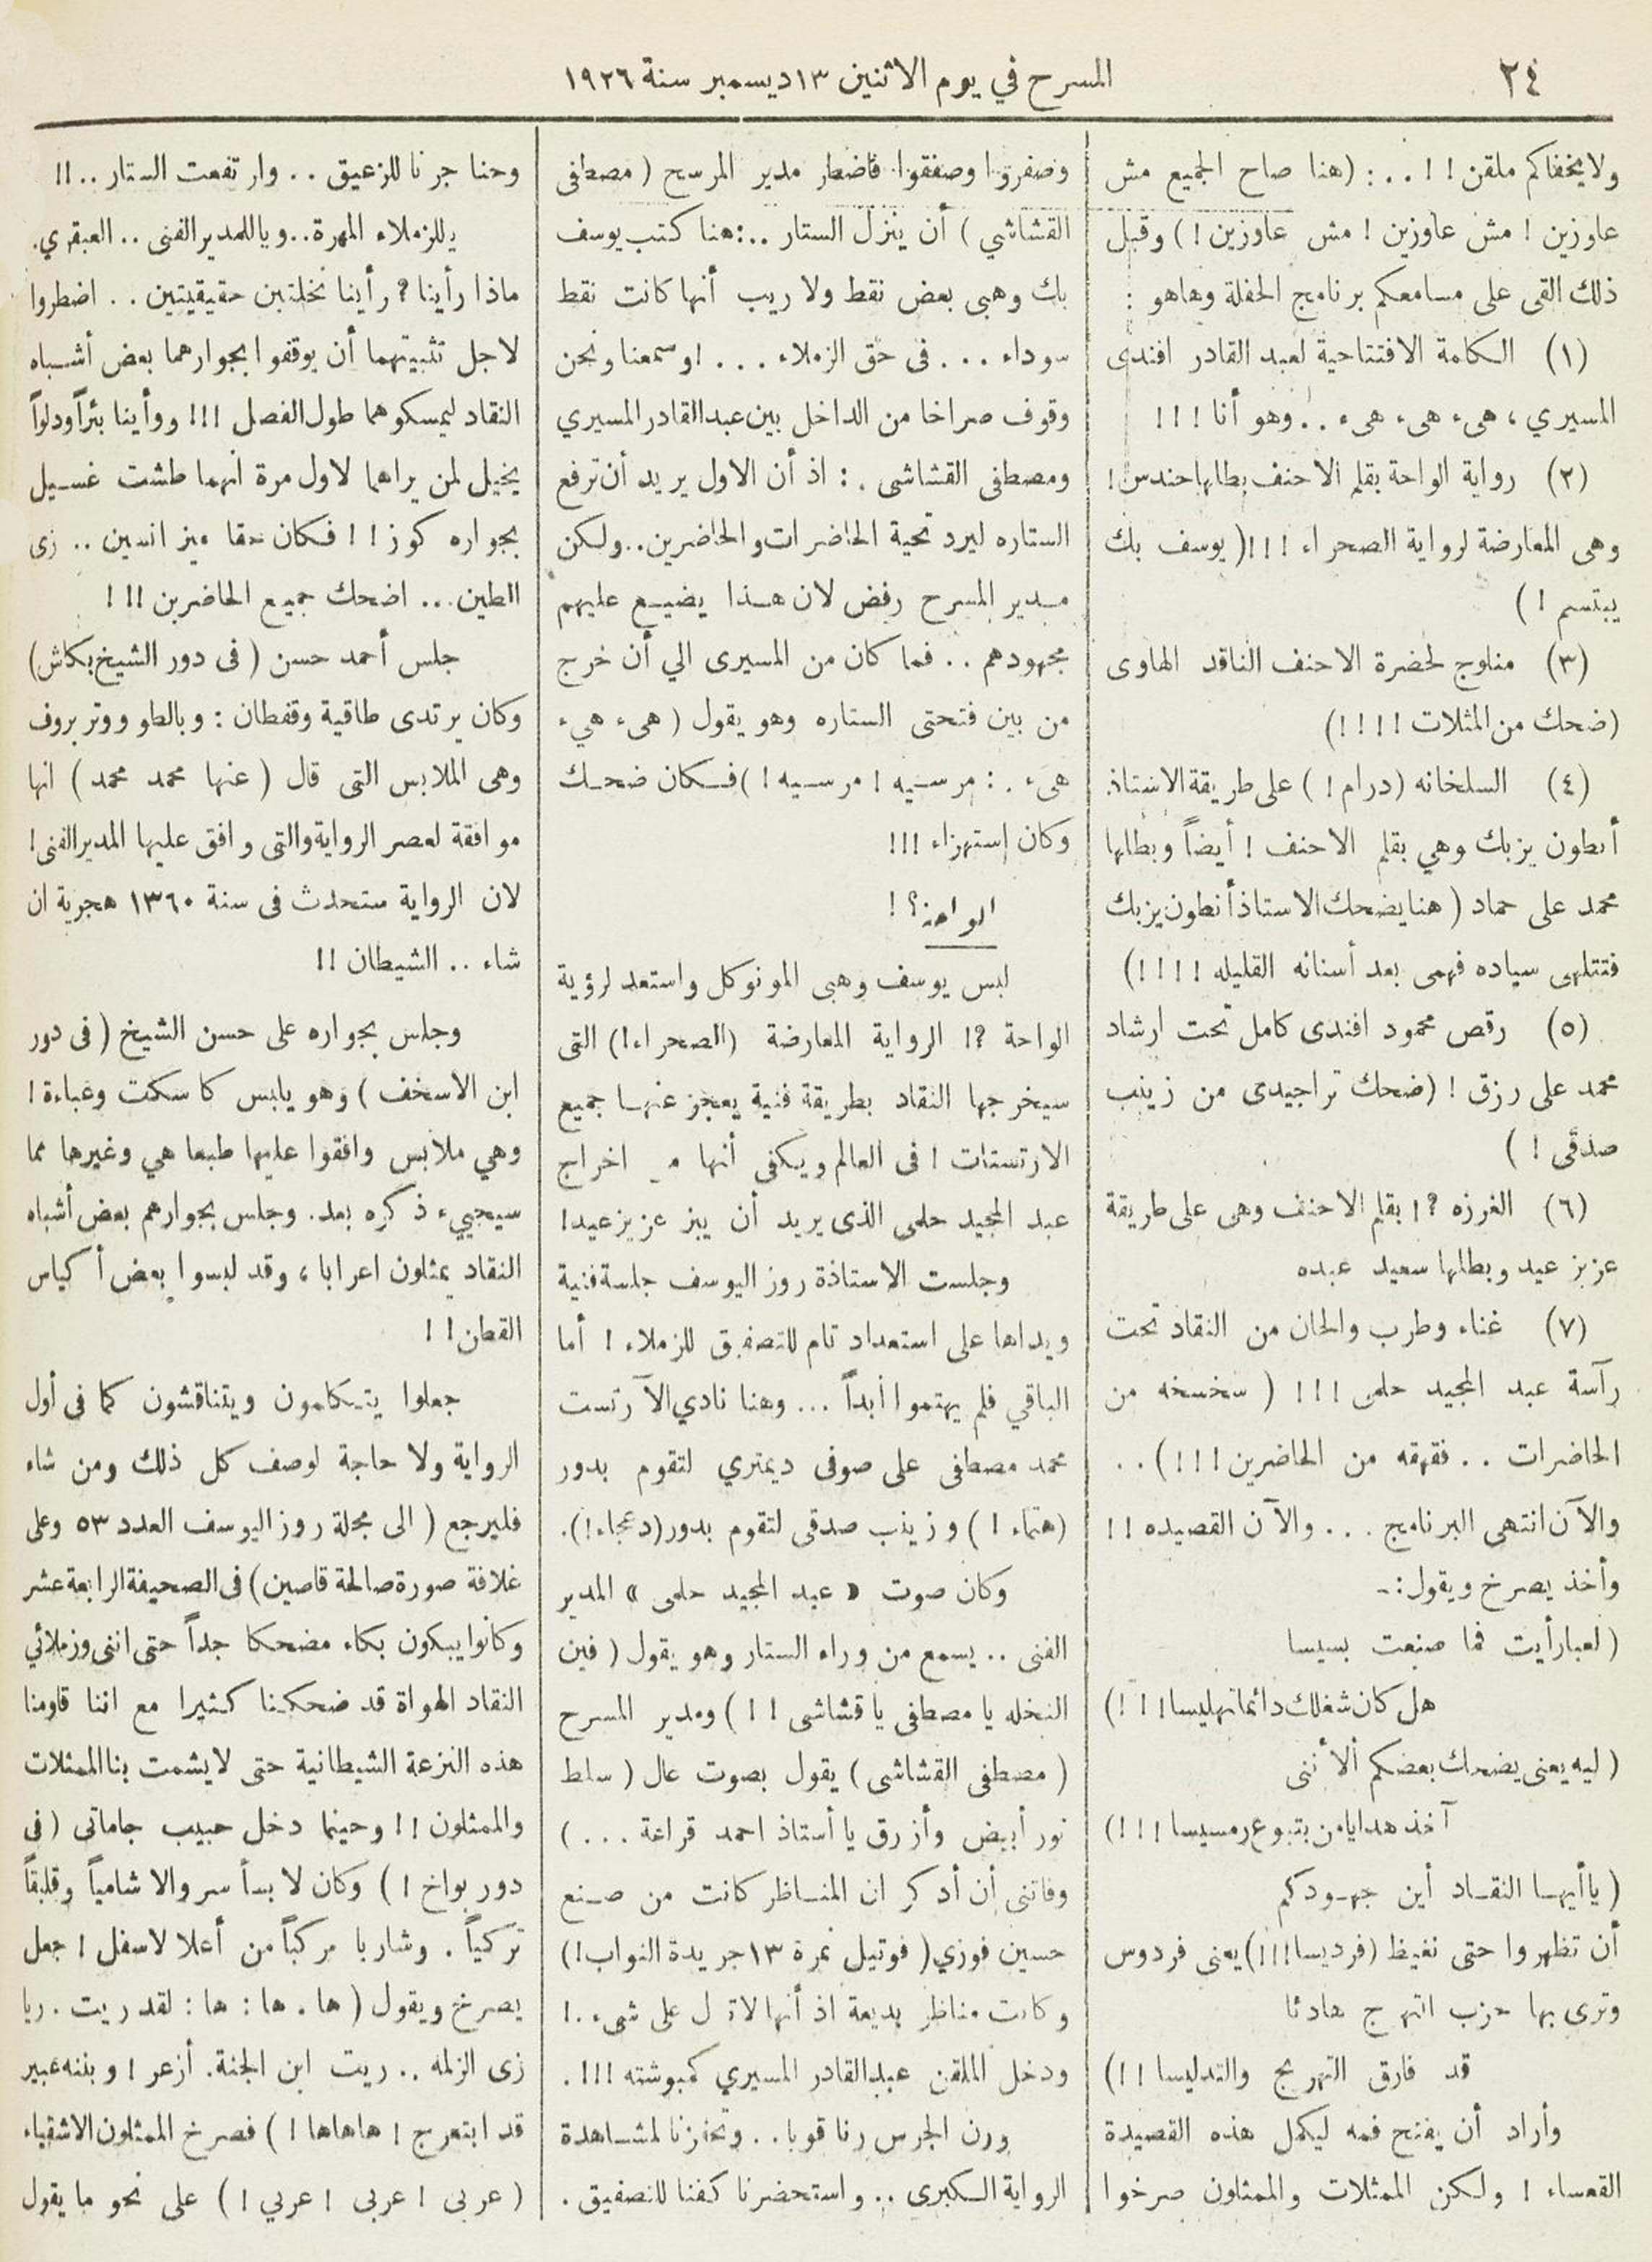 ٢٤
المسرح في يوم الاثنين ١٣ ديسمبر سنة ١٩٢٦
ولايخفاكم ملقن ! ! . . : (هنا صاح الجميع مش
عاوزين ! مش عاوزين ! مش عاوزين ! ) وقبل
ذلك القى على مسامعكم برنامج الحفلة وهاهو :
(١) الكلمة الافتتاحية لعبد القادر افندى
المسيري ، هىء هىء هىء . . وهو أنا ! ! !
(٢) رواية الواحة بقلم الاحنف بطلها حندس !
وهى المعارضة لرواية الصحراء ! ! ! ( يوسف بك
يبتسم ! )
(٣) مناوج لحضرة الاحنف الناقد الهاوى
(ضحك من المثلات ! ! ! !)
(٤) السلخانه (درام ! ) على طريقة الاستاذ
أنطون يزبك وهي بقلم الاحنف ! أيضاً وبطلها
محمد على حماد ( هنا يضحك الاستاذ أنطون يزبك
فتتلهى سياده فهمى بعد أسنانه القليله ! ! ! !)
(٥) رقص محمود افندى كامل تحت ارشاد
محمد على رزق ! (ضحك تراجيدى من زينب
صدقى ! )
(٦) الغرزه ؟ ! بقلم الاحنف وهى على طريقة
عزيز عيد وبطلها سعيد عبده
(٧) غناء وطرب والحان من النقاد تحت
رآسة عبد المجيد حلمى ! ! ! ( سخسخه من
الحاضرات . . فقهقه من الحاضرين ! ! ! ) . .
والآن انتهى البرنامج . . . والآن القصيده ! !
وأخذ يصرخ ويقول : -
( لعبارأيت فما صنعت بسيسا
هل كان شغلك دائما تهليسا ! ! !)
( ليه يعنى يضحك بعضكم ألأ ننى
آخذ هدايا من بتوع رمسيسا ! ! !)
( ياأيها النقاد أين جهودكم
أن تظهروا حتى نغيظ (فرديسا ! ! !) يعنى فردوس
وترى بها حزب التهرج هادئا
قد فارق التهريج والتدليسا ! ! )
وأراد أن يفتح فمه ليكمل هذه القصيدة
القعساء ! ولكن الممثلات والممثلون صرخوا
وصفروا وصفقوا فاضطر مدير المرسح ( مصطفى
القشاشي ) أن ينزل الستار . . : هنا كتب يوسف
بك وهبى بعض نقط ولا ريب أنها كانت نقط
سوداء . . . فى حق الزملاء . . . ! وسمعنا ونحن
وقوف صراخا من الداخل بين عبدالقادر المسيري
ومصطفى القشاشى . : اذ أن الاول يريد أن ترفع
الستاره ليرد تحية الحاضرات والحاضرين . . ولكن
مدير المسرح رفض لان هذا يضيع عليهم
مجهودهم . . فما كان من المسيرى الي أن خرج
من بين فتحتى الستاره وهو يقول ( هىء هيء
هىء . : مرسيه ! مرسيه ! ) فكان ضحك
وكان إستهزاء ! ! !
الواحة ؟ !
لبس يوسف وهبى المونوكل واستعد لرؤية
الواحة ؟ ! الرواية المعارضة (الصحراء !) التى
سيخرجها النقاد بطريقة فنية يعجز عنها جميع
الارتستات ! فى العالم ويكفى أنها م اخراج
عبد المجيد حلمى الذى يريد أن يبز عزيز عيد !
وجلست الاستاذة روز اليوسف جلسة فنية
ويداها على استعداد تام للتصفيق للزملاء ! أما
الباقي فلم يهتموا أبداً . . . وهنا نادي الآرتست
محمد مصطفى على صوفى ديمتري لتقوم بدور
(هتماء ! ) وزينب صدقى لتقوم بدور (دعجاء !) .
وكان صوت « عبد المجيد حلمى » المدير
الفنى . . يسمع من وراء الستار وهو يقول ( فين
النخله يا مصطفى يا قشاشى ! ! ) ومدير المسرح
( مصطفى القشاشى ) يقول بصوت عال ( سلط
نور أبيض وأزرق يا أستاذ احمد قراعة . . . )
وفاتنى أن أذكر ان المناظر كانت من صنع
حسين فوزي ( فوتيل نمرة ١٣ جريدة النواب !)
وكانت مناظر بديعة اذ أنها لا ل على شىء . !
ودخل الملقن عبدالقادر المسيري كمبوشته ! ! ! .
ورن الجرس رنا قويا . . وتحفزنا لمشاهدة
الرواية الكبرى . . واستحضرنا كفنا للتصفيق .
وحنا جرنا للزعيق . . وارتفعت الستار . . ! !
يللزملاء المهرة . . وياللمدير الفنى . . العبقري .
ماذا رأينا ؟ رأينا نخلتين حقيقيتين . . اضطروا
لاجل تثبيتهما أن يوقفوا بجوارهما بعض أشباه
النقاد ليمسكوهما طول الفصل ! ! ! ورأينا بئراً ودلواً
يخيل لمن يراهما لاول مرة انهما طشت غسيل
بجواره كوز ! ! فكان حقا ميزانسين . . زى
الطين . . . اضحك جميع الحاضرين ! ! !
جلس أحمد حسن ( فى دور الشيخ بكاش)
وكان يرتدى طاقية وقفطان : وبالطو ووتر بروف
وهى الملابس التى قال ( عنها محمد محمد ) انها
موافقة لعصر الرواية والتى وافق عليها المدير الفنى !
لان الرواية ستحدث فى سنة ١٣٦٠ هجرية ان
شاء . . الشيطان ! !
وجلس بجواره على حسن الشيخ ( فى دور
ابن الاسخف ) وهو يلبس كاسكت وعباءة !
وهي ملابس وافقوا عليها طبعا هي وغيرها مما
سيجييء ذكره بعد . وجلس بجوارهم بعض أشباه
النقاد يمثلون اعرابا ، وقد لبسوا بعض أكياس
القطن ! !
جعلوا يتكلمون ويتناقشون كما فى أول
الرواية ولا حاجة لوصف كل ذلك ومن شاء
فليرجع ( الى مجلة روز اليوسف العدد ٥٣ وعلى
غلافة صورة صالحة قاصين) فى الصحيفة الرابعة عشر
وكانوا يبكون بكاء مضحكا جداً حتى اننى وزملائي
النقاد الهواة قد ضحكنا كثيرا مع اننا قاومنا
هذه النزعة الشيطانية حتى لايشمت بنا الممثلات
والممثلون ! ! وحينما دخل حبيب جاماتى ( فى
دور بواخ ! ) وكان لابساً سروالا شامياً وقلبقاً
تركياً . وشاربا مركباً من أعلا لاسفل ! جعل
يصرخ ويقول ( ها . ها : ها : لقد ريت . ريا
زى الزلمه . . ريت ابن الجنة . أزعر ! وبننه عبير
قد ابتعرج ! هاهاها ! ) فصرخ الممثلون الاشقياء
( عربى ! عربى ! عربي ! ) على نحو ما يقول